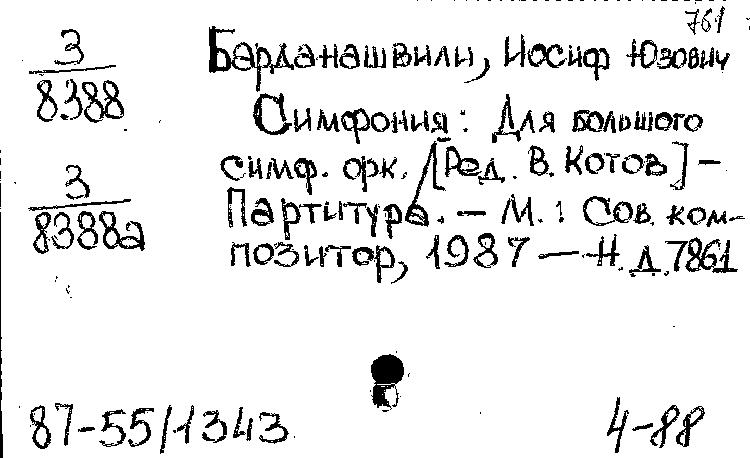 761
3
8388
Барданашвили, Иосиф Юзович
Симфония: Для большого
симф. орк. / [Ред. В. Котов] –
3
8388а
Партитура. – М. : Сов. ком-
позитор, 1987 – Н. д. 7861
87-55/1343
4-88